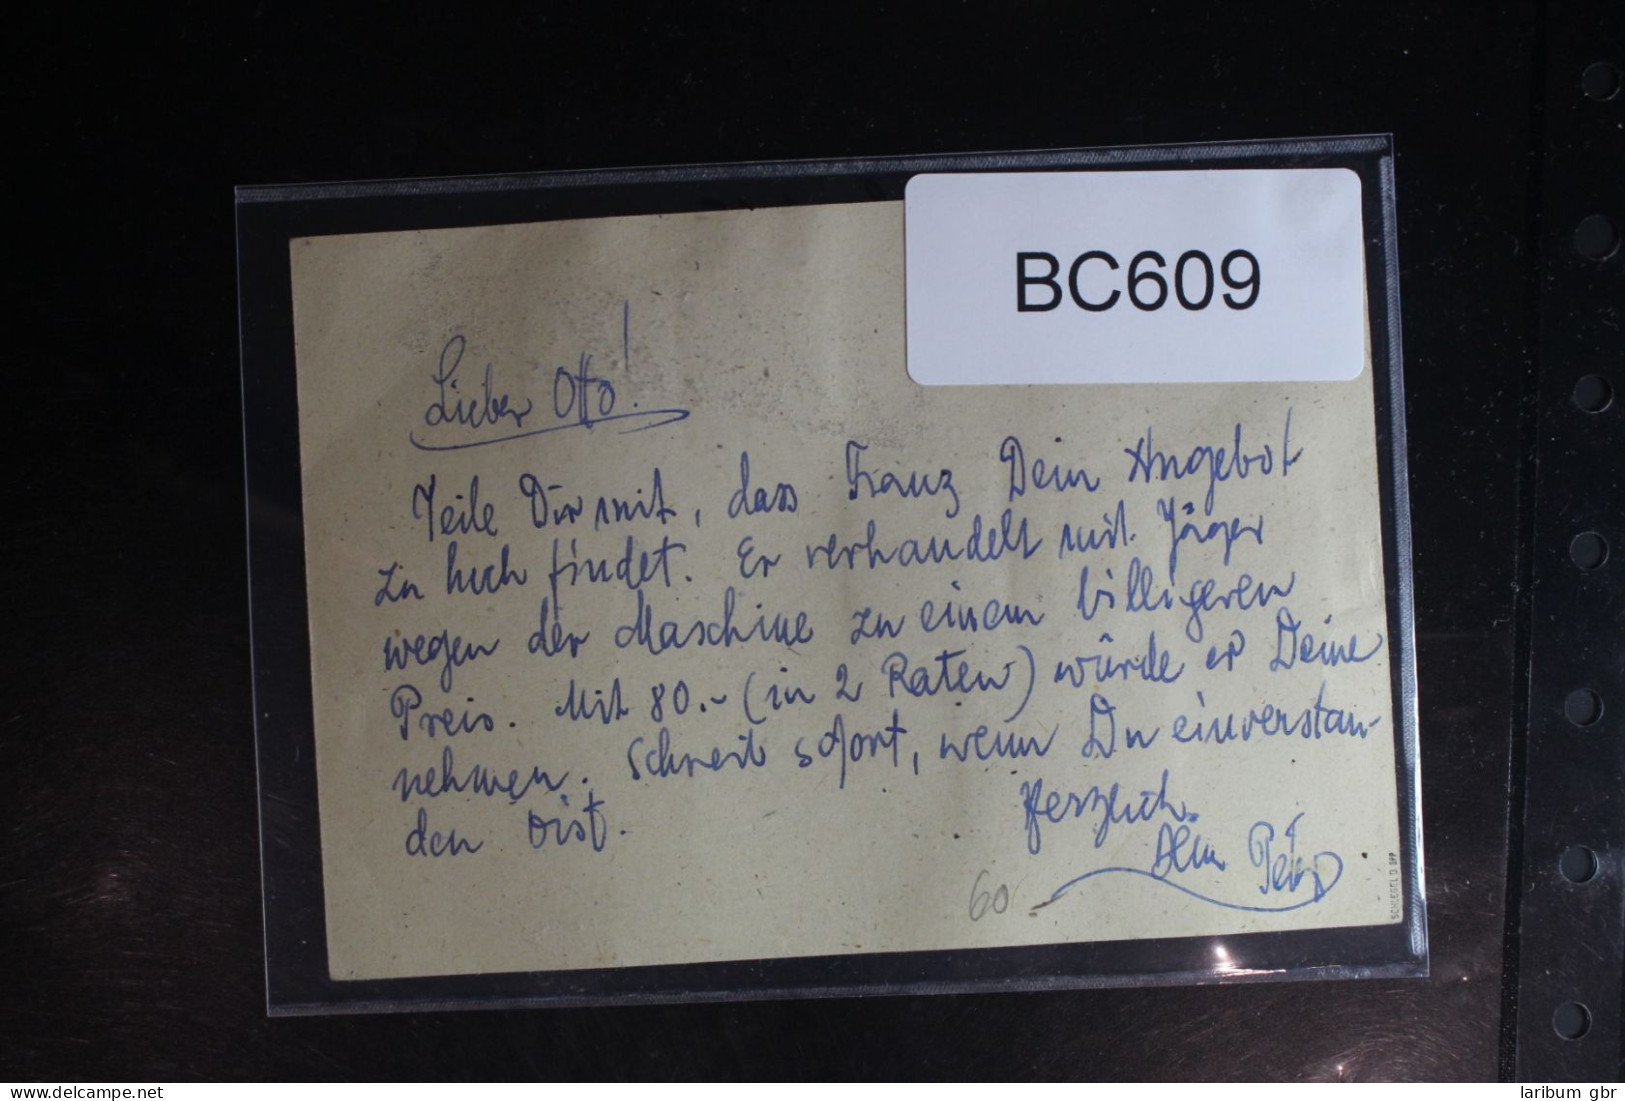 BC609
Lieber Otto!
Teile Dir mit, dass Franz Dein Angebot
zu hoch findet. Er verhandelt mit Jäger
wegen der Maschine zu einem billigeren
Preis. Mit 80.- (in 2 Raten) würde er Deine
nehmen. Schreib sofort, wenn Du einverstan-
den bist.
Herzlich.
Dein Peter
60
SCHLEGEL D. OPP
www.delcampe.net
laribum gbr